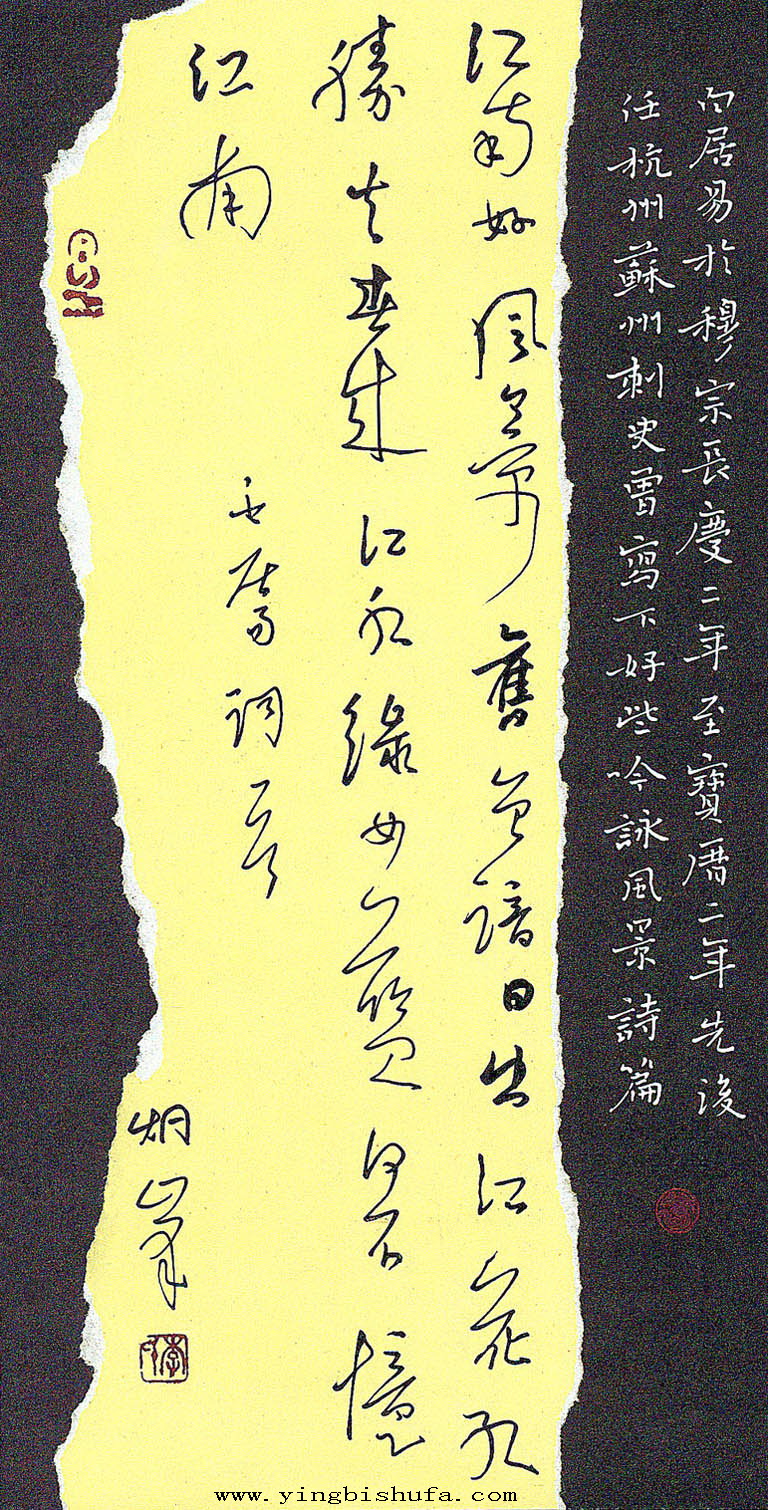 白居易於穆宗長慶二年至寶曆二年先後
任杭州蘇州刺史曾寫下好些吟詠風景詩篇
江南好風景舊曾諳日出江花紅
勝火春來江水綠如藍能不憶
江南
白居易詞一首
炯峯
www.yingbishufa.com